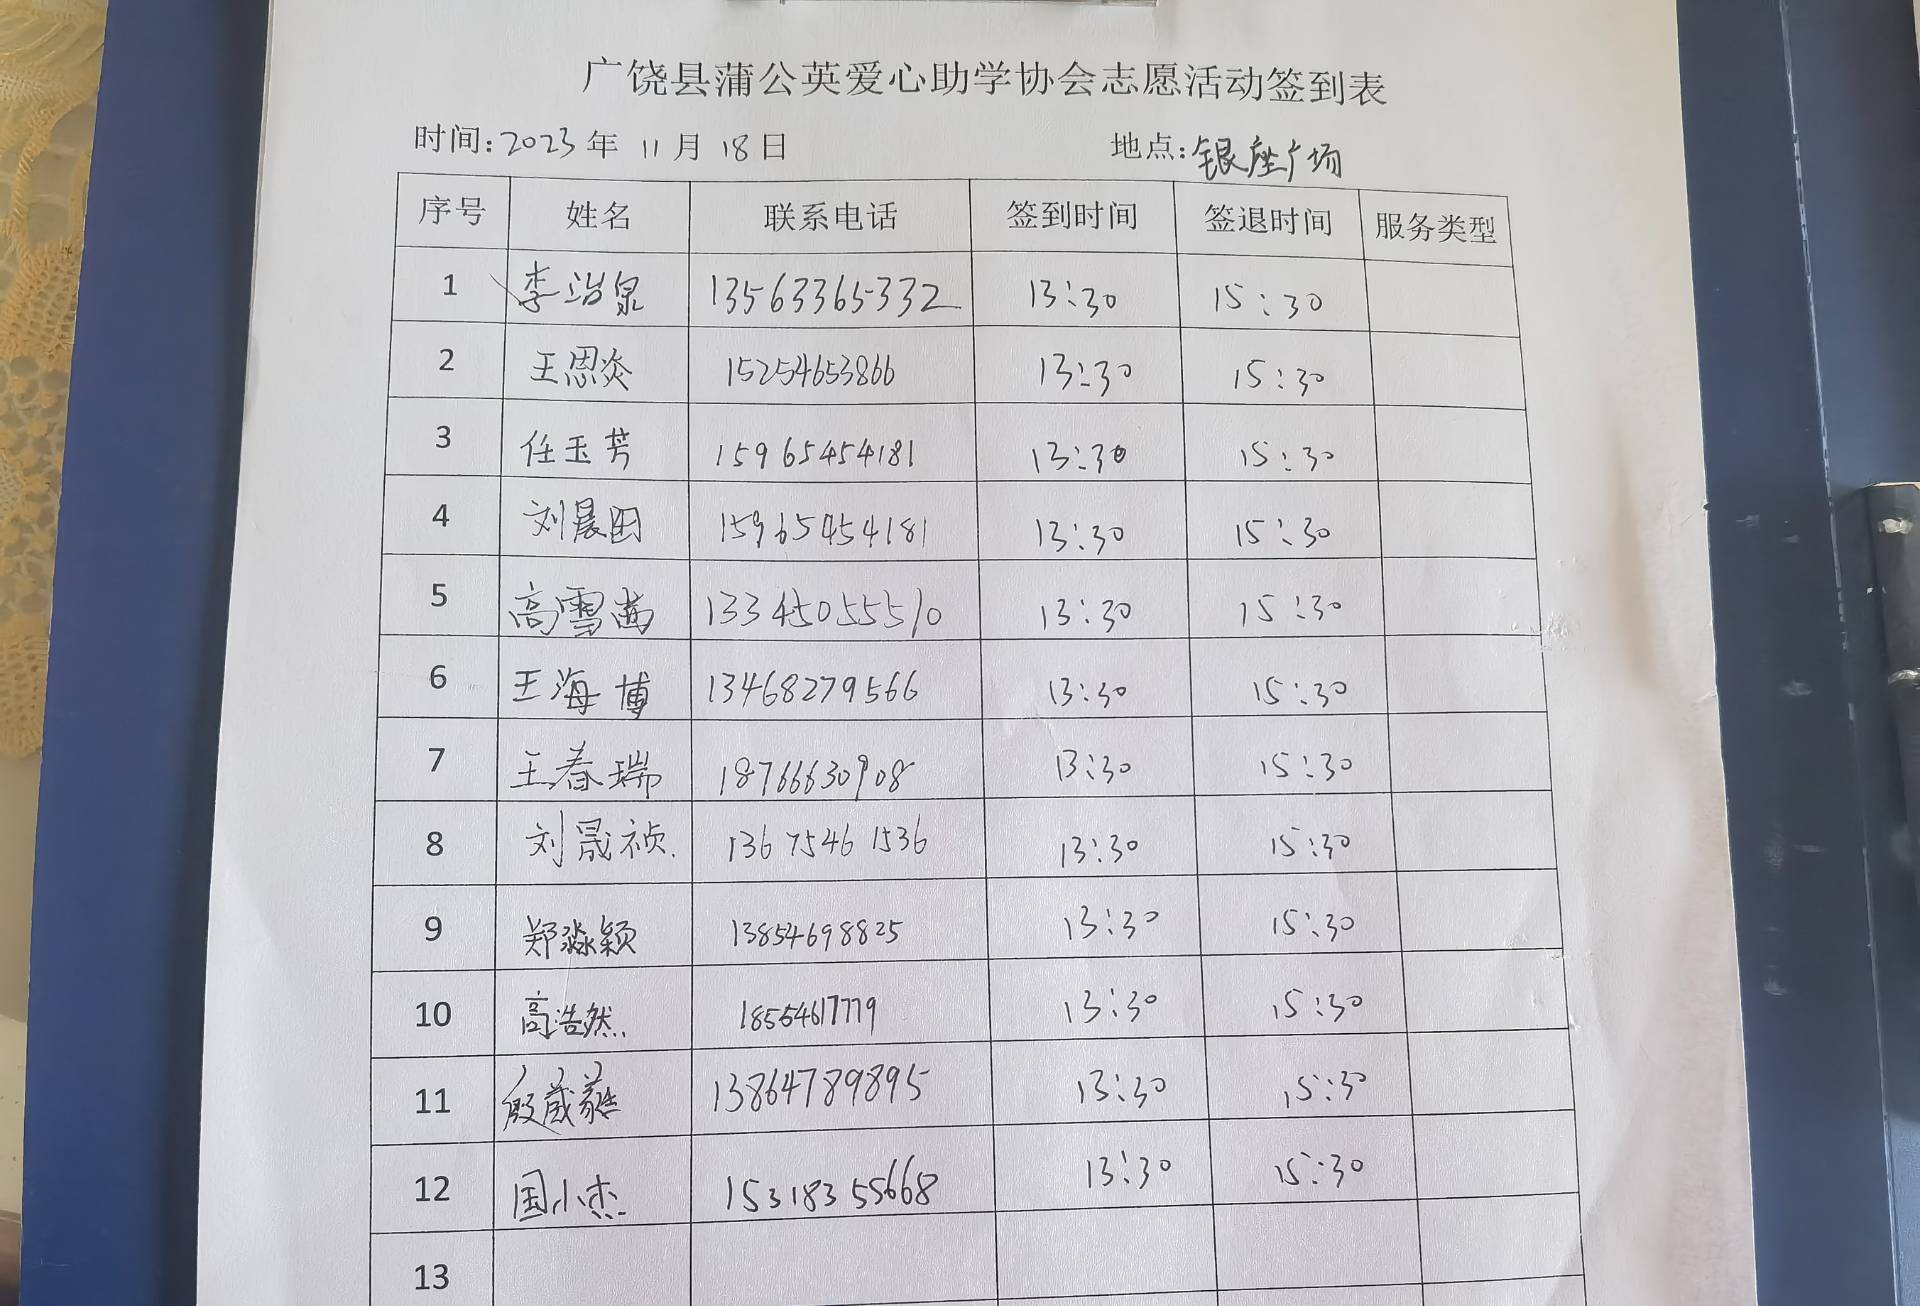 广饶县蒲公英爱心助学协会志愿活动签到表
时间:2023年 11月 18日 地点:银座广场
序号 姓名 联系电话 签到时间 签退时间 服务类型
1 李治泉 13563365332 13:30 15:30
2 王恩炎 15254653866 13:30 15:30
3 任玉芳 15965454181 13:30 15:30
4 刘晨 15965454181 13:30 15:30
5 高雪茜 13345055510 13:30 15:30
6 王海博 13468279566 13:30 15:30
7 王春瑞 18766630908 13:30 15:30
8 刘晟祯 13675461536 13:30 15:30
9 郑淼颖 13854698825 13:30 15:30
10 高浩然 18554617779 13:30 15:30
11 殷 13864789895 13:30 15:30
12 国小杰 15318355668 13:30 15:30
13